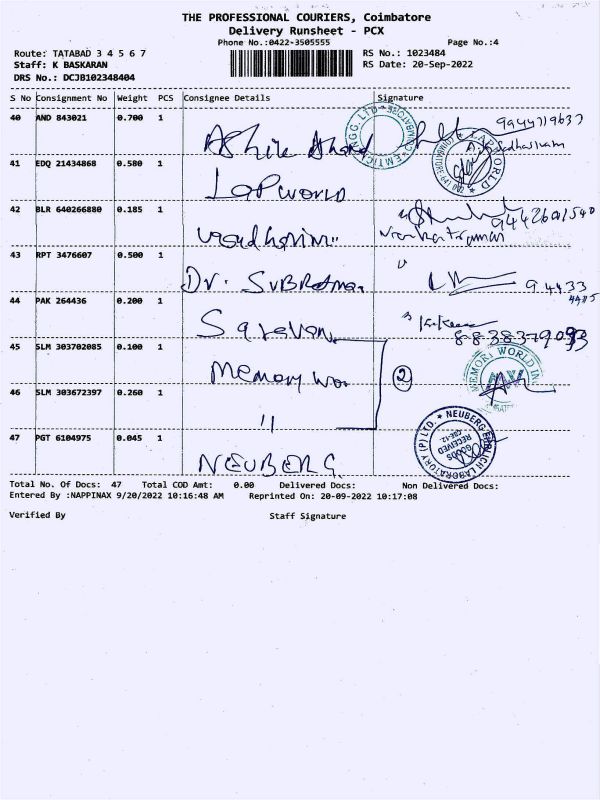 THE PROFESSIONAL COURIERS, Coimbatore
Delivery Runsheet - PCX
Phone No.:0422-3505555
Page No.:4
Route: TATABAD 3 4 5 6 7
RS No.: 1023484
Staff: K BASKARAN
RS Date: 20-Sep-2022
DRS No.: DCJB102348404
S No Consignment No Weight PCS Consignee Details Signature
40 AND 843021 0.700 1 9944719637
41 EDQ 21434868 0.580 1 LAPWORLD
42 BLR 640266880 0.185 1
43 RPT 3476607 0.500 1 Dr. 94433
44 PAK 264436 0.200 1 Saravan
45 SLM 303702085 0.100 1 Memory Wor 2 MEMORY WORLD
46 SLM 303672397 0.260 1 "
47 PGT 6104975 0.045 1 NEUBERG
Total No. Of Docs: 47 Total COD Amt: 0.00 Delivered Docs: Non Delivered Docs:
Entered By :NAPPINAX 9/20/2022 10:16:48 AM Reprinted On: 20-09-2022 10:17:08
Verified By Staff Signature